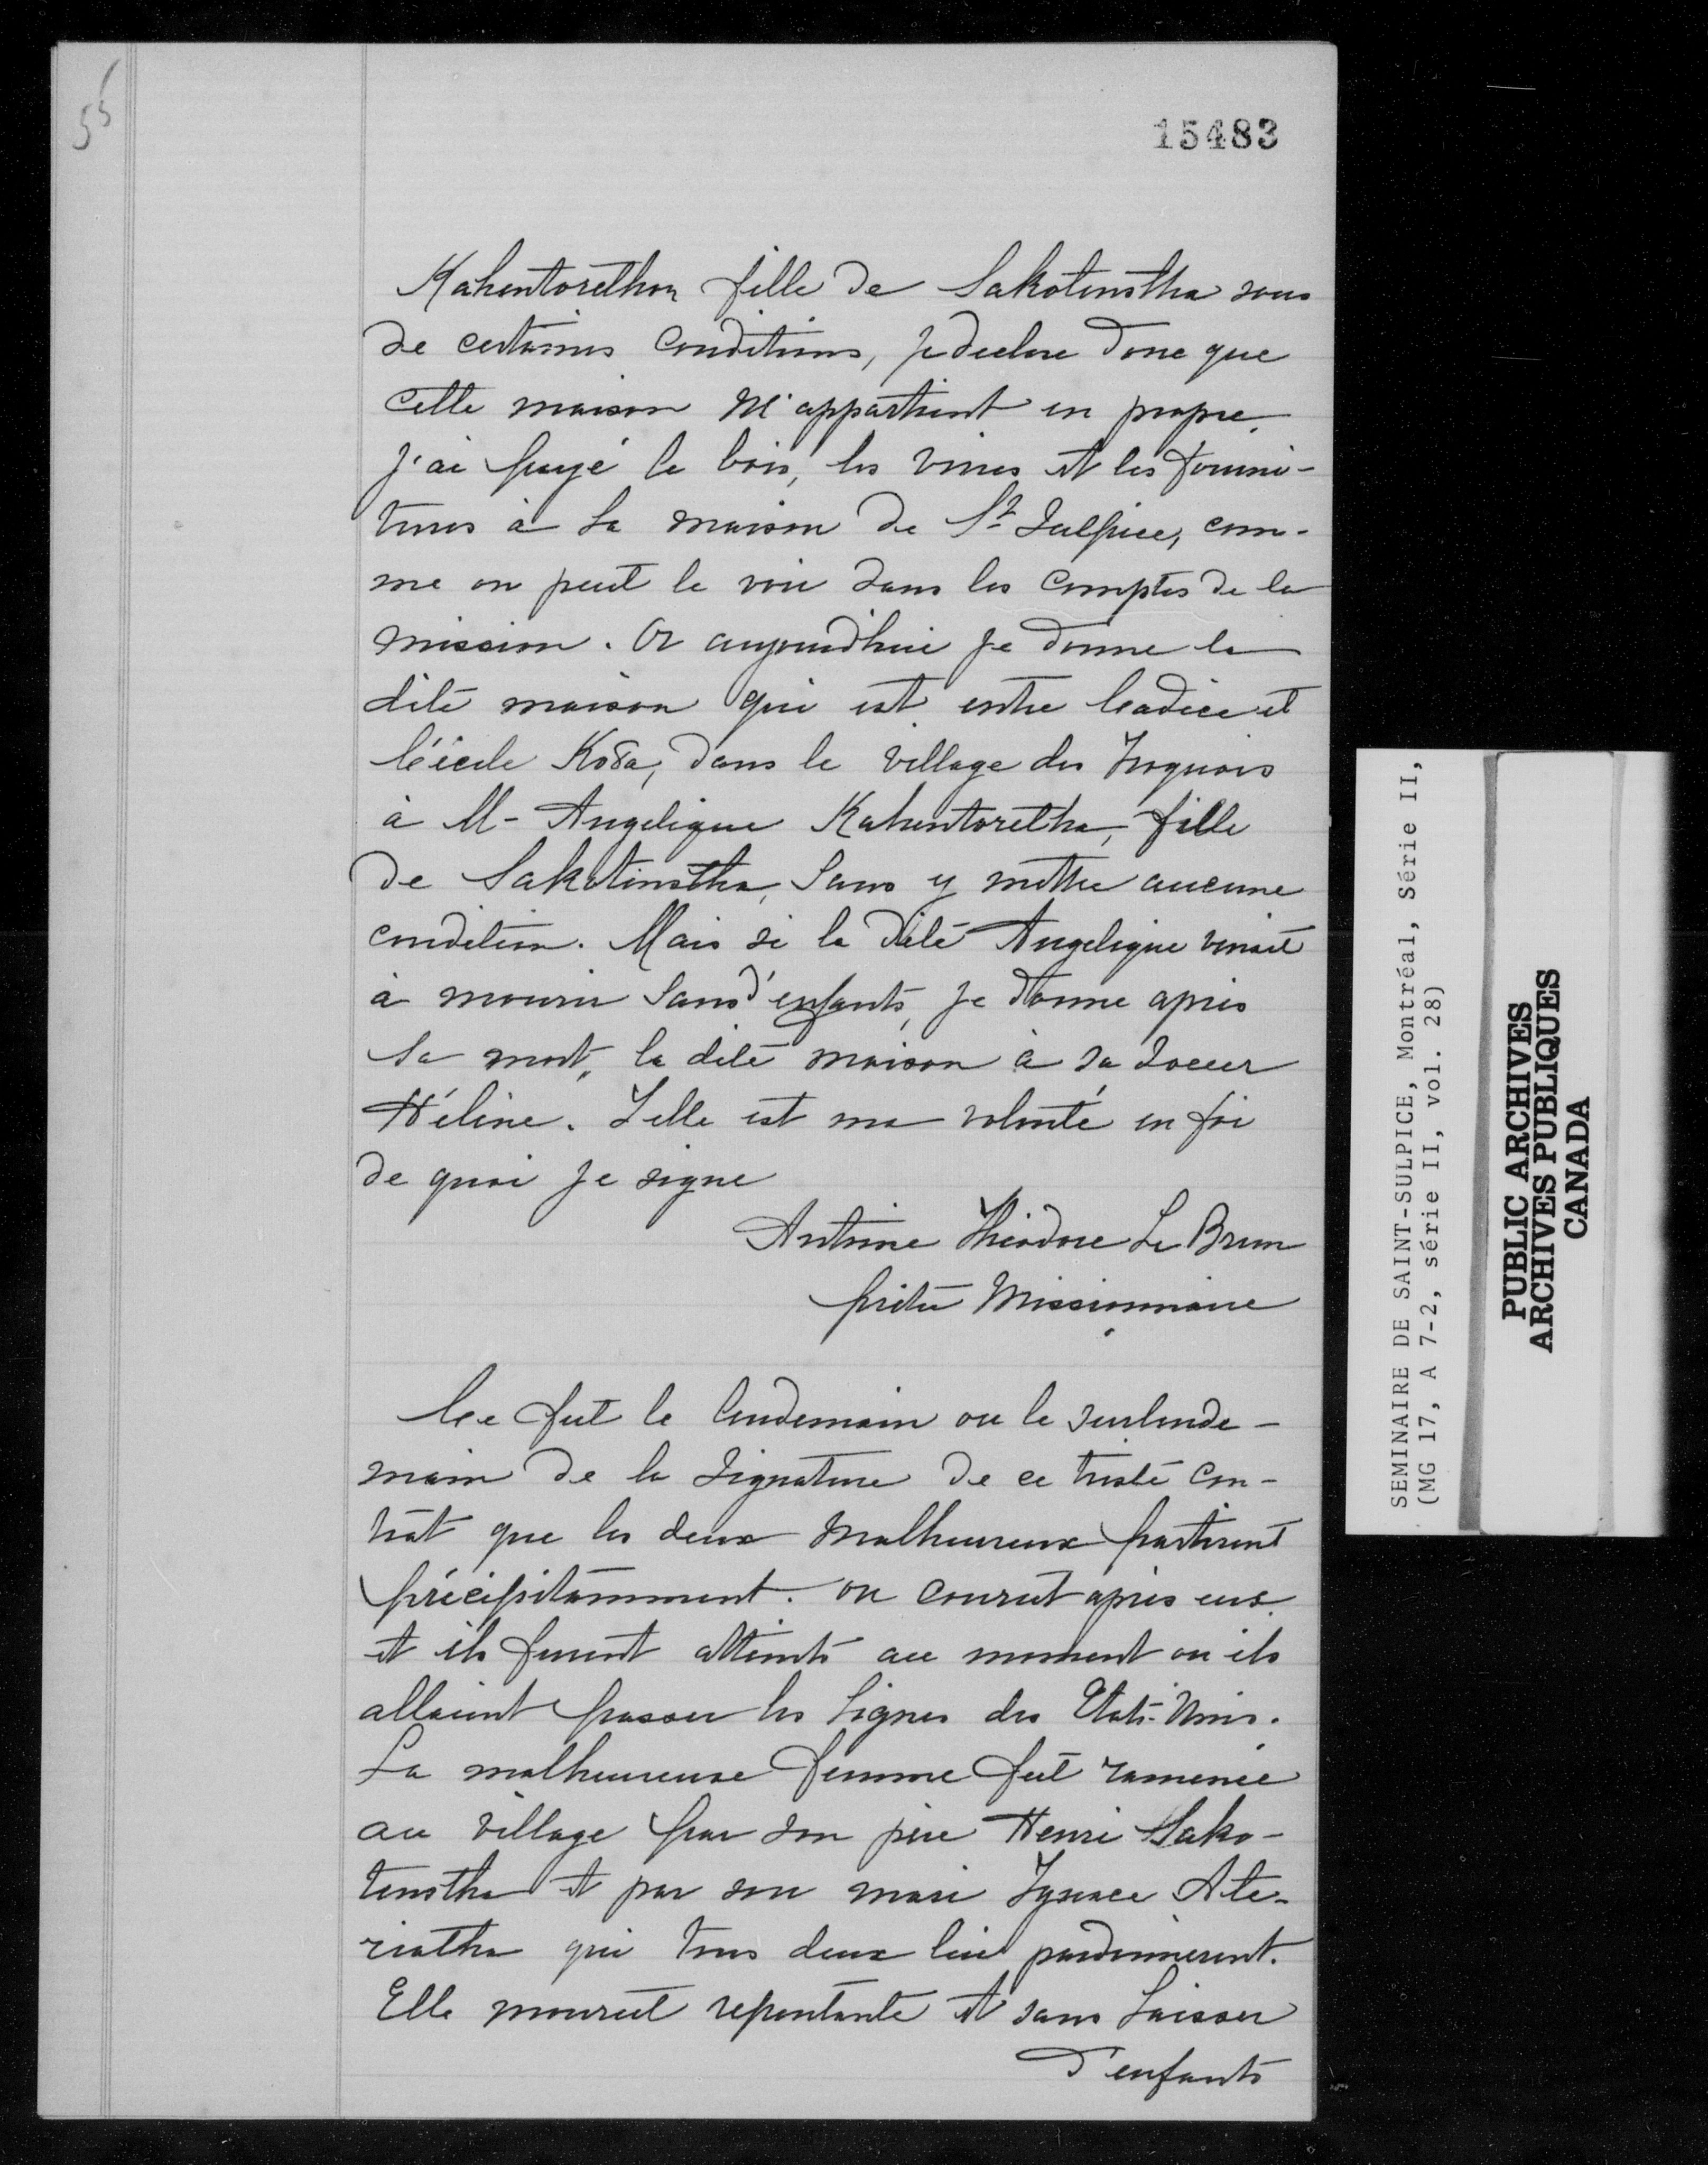 55
15483
Kahentorethon fille de Sakotenstha sous
de certaines conditions, je declare donc que
cette maison m'appartient en propre.
J'ai payé le bois, les vivres et les fourni-
tures à la maison de St Sulpice, com-
me on peut le voir dans les comptes de la
mission. Or aujourd'hui je donne la
dite maison qui est entre et
Ko8a, dans le village des Iroquois
à M- Angelique Kahentoretha, fille
de Sakotenstha, sans y mettre aucune
condition. Mais si la dite Angelique venait
à mourir sans d'enfants, je donne après
sa mort, la dite maison à sa soeur
Hélène. Telle est ma volonté en foi
de quoi je signe
Antoine Théodore Le Brun
prêtre Missionnaire
Ce fut le lendemain ou le surlende-
main de la signature de ce triste con-
trat que les deux malheureux partirent
précipitamment. on courut après eux
et ils furent atteints au moment ou ils
allaient passer les lignes des Etats-Unis.
La malheureuse femme fut ramenée
au village par son père Henri Sako-
tenstha et par son mari Ignace Ate-
riatha qui tous deux lui pardonnerent.
Elle mourut repentante et sans laisser
d'enfants
SEMINAIRE DE SAINT-SULPICE, Montréal, Série II,
(MG 17, A 7-2, série II, vol. 28)
PUBLIC ARCHIVES
ARCHIVES PUBLIQUES
CANADA